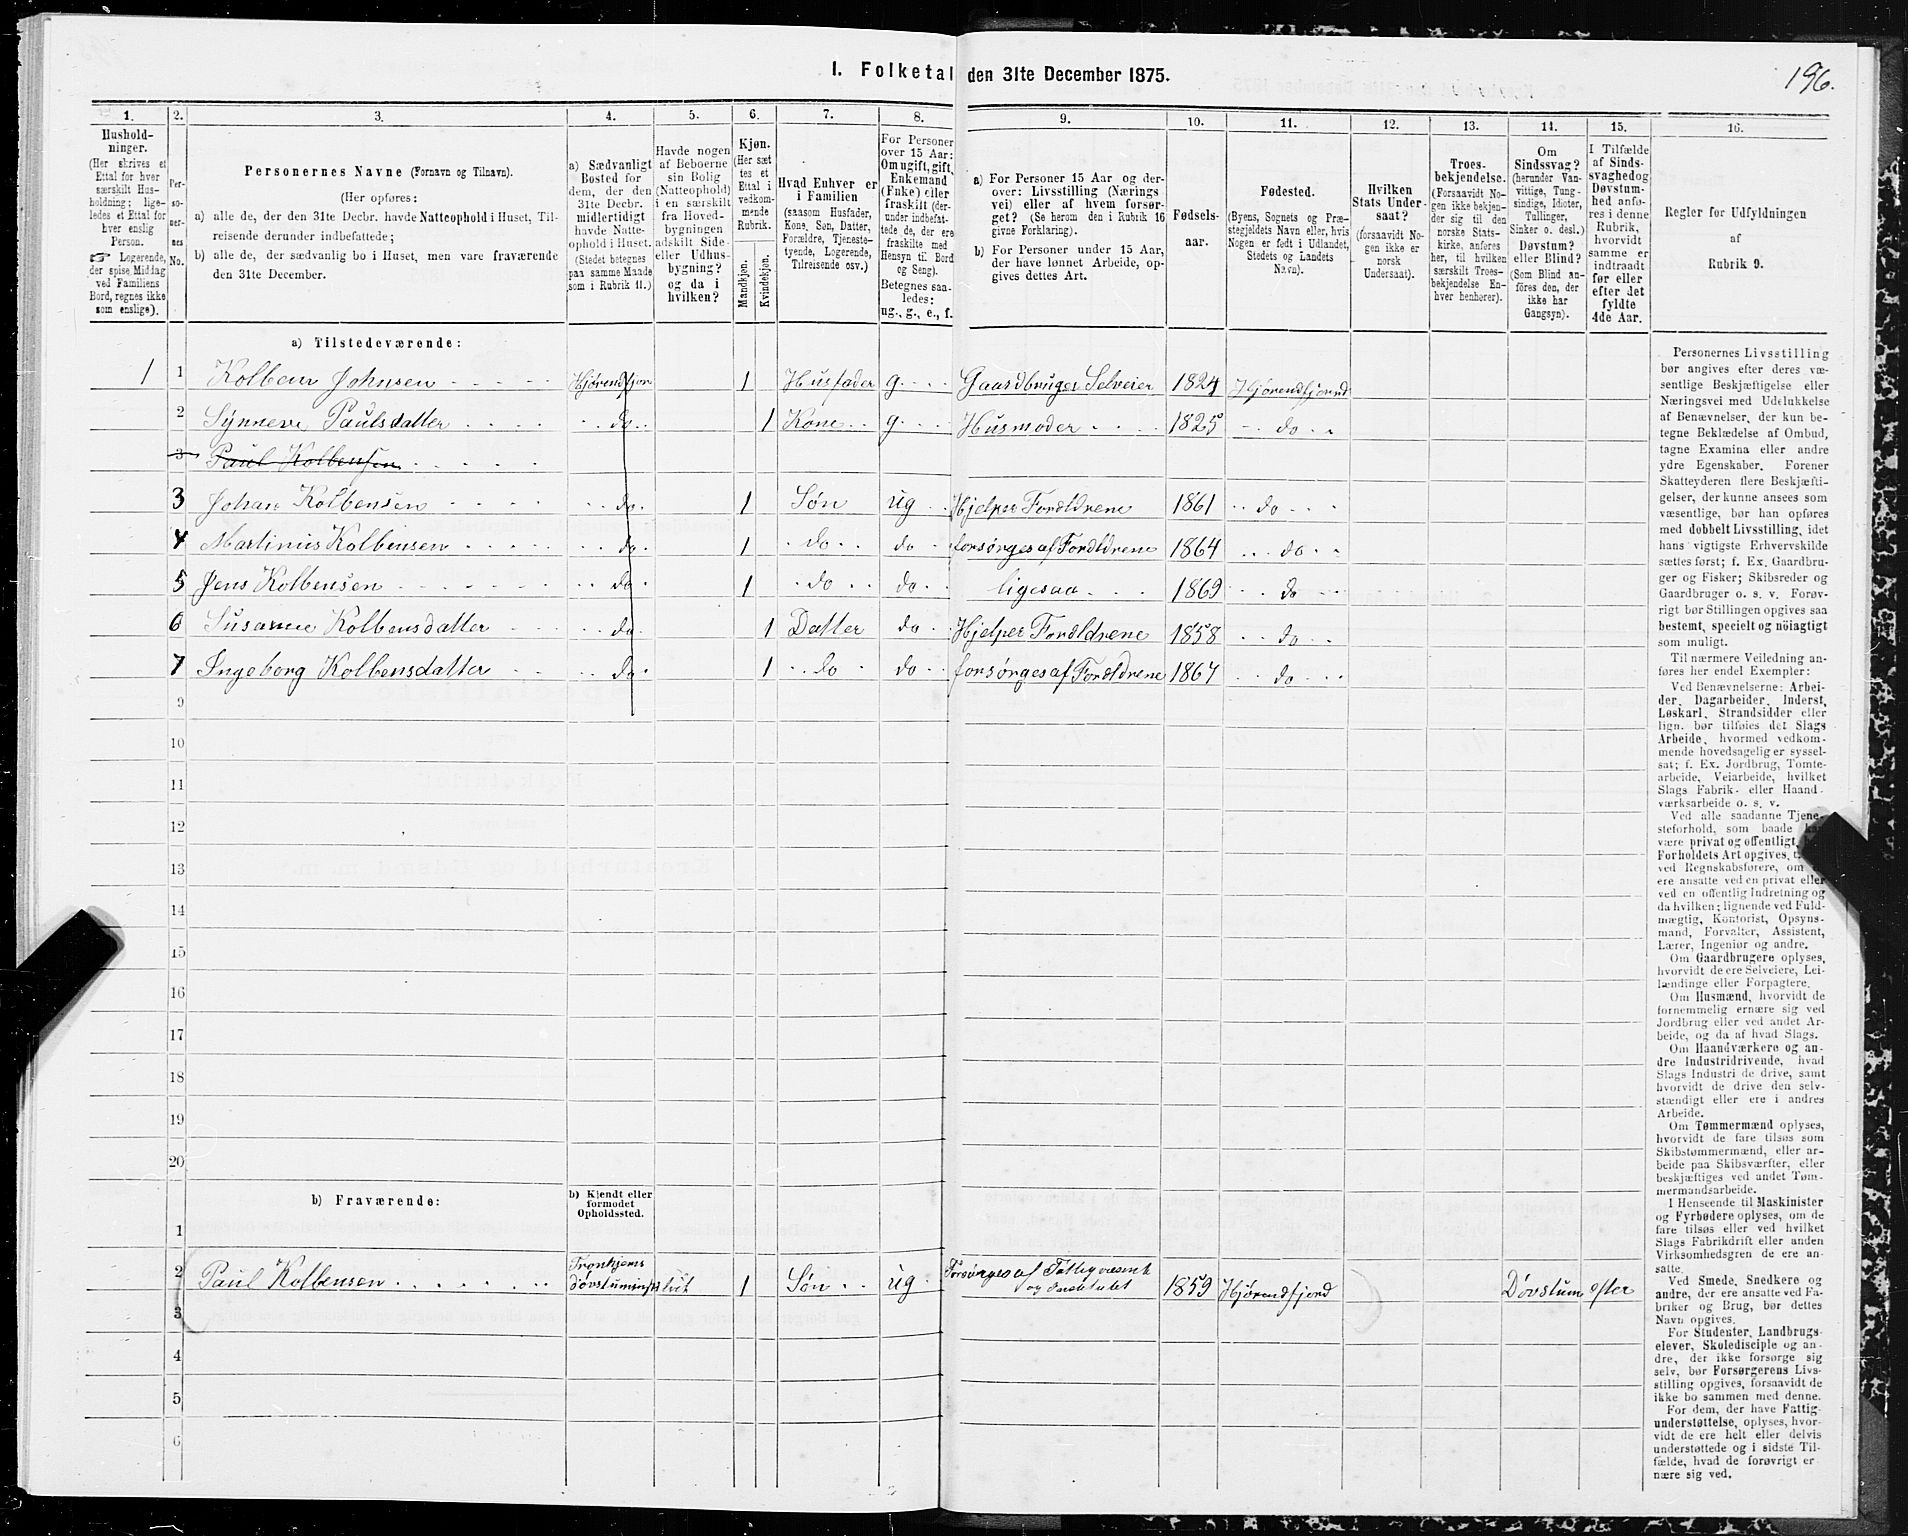 I. Folketal den 31te December 1875.
196.
1.
Hushold-
ninger.
(Her skrives et
Ettal for hver
særskilt Hus-
holdning; lige-
ledes et Ettal for
hver enslig
Person.
☞ Logerende,
der spise Middag
ved Familiens
Bord, regnes ikke
som enslige).
2.
Per-
so-
ner-
nes
No.
3.
Personernes Navne (Fornavn og Tilnavn).
(Her opføres:
a) alle de, der den 31te Decbr. havde Natteophold i Huset, Til-
reisende derunder indbefattede;
b) alle de, der sædvanlig bo i Huset, men vare fraværende
den 31te December.
4.
a) Sædvanligt
Bosted for
dem, der den
31te Decbr.
midlertidigt
havde Natte-
ophold i Huset.
(Stedet betegnes
paa samme Maade
som i Rubrik 11.)
5.
Havde nogen
af Beboerne
sin Bolig
(Natteophold)
i en særskilt
fra Hoved-
bygningen
adskilt Side-
eller Udhus-
bygning?
og da i
hvilken?
6.
Kjøn.
(Her sæt
tes et
Ettal i
vedkom-
mende
Rubrik.
Mandkjøn.
Kvindekjøn.
7.
Hvad Enhver er
i Familien
(saasom Husfader,
Kone, Søn, Datter,
Forældre, Tjeneste-
tyende, Logerende,
Tilreisende osv.)
8.
For Personer
over 15 Aar:
Om ugift, gift,
Enkemand
(Enke) eller
fraskilt (der-
under indbefat-
tede de, der ere
fraskilte med
Hensyn til Bord
og Seng).
Betegnes saa-
ledes:
ug., g., e., f.
9.
a) For Personer 15 Aar og der-
over: Livsstilling (Nærings
vei) eller af hvem forsør-
get? (Se herom den i Rubrik 16
givne Forklaring).
b) For Personer under 15 Aar,
der have lønnet Arbeide, op-
gives dettes Art.
10.
Fødsels-
aar.
11.
Fødested.
(Byens, Sognets og Præ-
stegjeldets Navn eller, hvis
Nogen er født i Udlandet,
Stedets og Landets
Navn).
12.
Hvilken
Stats Under-
saat?
(forsaavidt No-
gen ikke er
norsk
Undersaat).
13.
Troes-
bekjendelse.
(Forsaavidt No-
gen ikke bekjen-
der sig til den
norske Stats-
kirke, anføres
her, til hvilken
særskilt Troes-
bekjendelse En-
hver henhører).
14.
Om
Sindssvag?
(herunder Van-
vittige, Tung-
sindige, Idioter,
Tullinger,
Sinker o. desl.)
Døvstum?
eller Blind?
(Som Blind an-
føres den, der
ikke har
Gangsyn).
15.
I Tilfælde
af Sinds-
svaghed og
Døvstum-
hed anfø-
res i denne
Rubrik,
hvorvidt
samme er
indtraadt
før eller
efter det
fyldte
4de Aar.
16.
Regler for Udfyldningen
af
Rubrik 9.
a) Tilstedeværende:
1 1 Kolbein Johnsen Hjørendfjor 1 Husfader g. Gaardbruger Selveier 1824 Hjørendfjord
2 Synneve Paulsdatter do 1 Kone g. Husmoder 1825 do
3 Paul Kolbensen
3 Johan Kolbensen do 1 Søn ug Hjelper Foreldrene 1861 do
4 Martinus Kolbensen do 1 do do forsørges af Foreldrene 1864 do
5 Jens Kolbensen do 1 do do ligesaa 1869 do
6 Susanne Kolbensdatter do 1 Datter do Hjelper Foreldrene 1858 do
7 Ingeborg Kolbensdatter do 1 do do forsørges af Foreldrene 1867 do
9
10
11
12
13
14
15
16
17
18
19
20
b) Fraværende:
b) Kjendt eller
formodet
Opholdssted.
1
2 Paul Kolbensen Tronhjems døvstuminstitut 1 Søn ug. Forsørges af Fattigvæsent og Institutet 1859 Hjørendfjord Døvstum efter
3
4
5
6
Personernes Livsstilling
bør angives efter deres væ-
sentlige Beskjæftigelse eller
Næringsvei med Udelukkelse
af Benævnelser, der kun be-
tegne Beklædelse af Ombud,
tagne Examina eller andre
ydre Egenskaber. Forener
Skatteyderen flere Beskjæfti-
gelser, der kunne ansees som
væsentlige, bør han opføres
med dobbelt Livsstilling, idet
hans vigtigste Erhvervskilde
sættes først; f. Ex. Gaardbru-
ger og Fisker; Skibsreder og
Gaardbruger o. s. v. Forøv-
rigt bør Stillingen opgives saa
bestemt, specielt og nöiagtigt
som muligt.
Til nærmere Veiledning an-
føres her endel Exempler:
Ved Benævnelserne: Arbei-
der, Dagarbeider, Inderst,
Løskarl, Strandsidder eller
lign. bør tilføies det Slags
Arbeide, hvormed vedkom-
mende hovedsagelig er syssel-
sat; f. Ex. Jordbrug, Tomte-
arbeide, Veiarbeide, hvilket
Slags Fabrik- eller Haand
værksarbeide o. s. v.
Ved alle saadanne Tjene-
steforhold, som baade kan
være privat og offentligt,
Forholdets Art opgives,
ved Regnskabsførere, om
ere ansatte ved en privat eller
ved en offentlig Indretning og
da hvilken; lignende ved Fuld-
mægtig, Kontorist, Opsyns-
mand, Forvalter, Assistent,
Lærer, Ingeniør og andre.
Om Gaardbrugere oplyses,
hvorvidt de ere Selveiere, Lei-
lændinge eller Forpagtere.
Om Husmænd, hvorvidt de
fornemmelig ernære sig ved
Jordbrug eller ved andet Ar-
beide, og da af hvad Slags.
Om Haandværkere og an-
dre Industridrivende, hvad
Slags Industri de drive, samt
hvorvidt de drive den selv-
stændigt eller ere i andres
Arbeide.
Om Tømmermænd oplyses,
hvorvidt de fare tilsøs som
Skibstømmermænd, eller ar-
beide paa Skibsværfter, eller
beskjæftiges ved andet Tøm-
mermandsarbeide.
I Henseende til Maskinister
og Fyrbødere oplyses, om de
fare tilsøs eller ved hvilket
Slags Fabrikdrift eller anden
Virksomhedsgren de ere an-
satte.
Ved Smede, Snedkere og
andre, der ere ansatte ved Fa-
briker og Brug, bør dettes
Navn opgives.
For Studenter, Landbrugs-
elever, Skoledisciple og an-
dre, der ikke forsørge sig
selv, bør Forsørgerens Livs-
stilling opgives, forsaavidt de
ikke bo sammen med denne.
For dem, der have Fattig-
understøttelse, oplyses, hvor-
vidt de ere helt eller delvis
understøttede og i sidste Til-
fælde, hvad de forøvrigt er
nære sig ved.